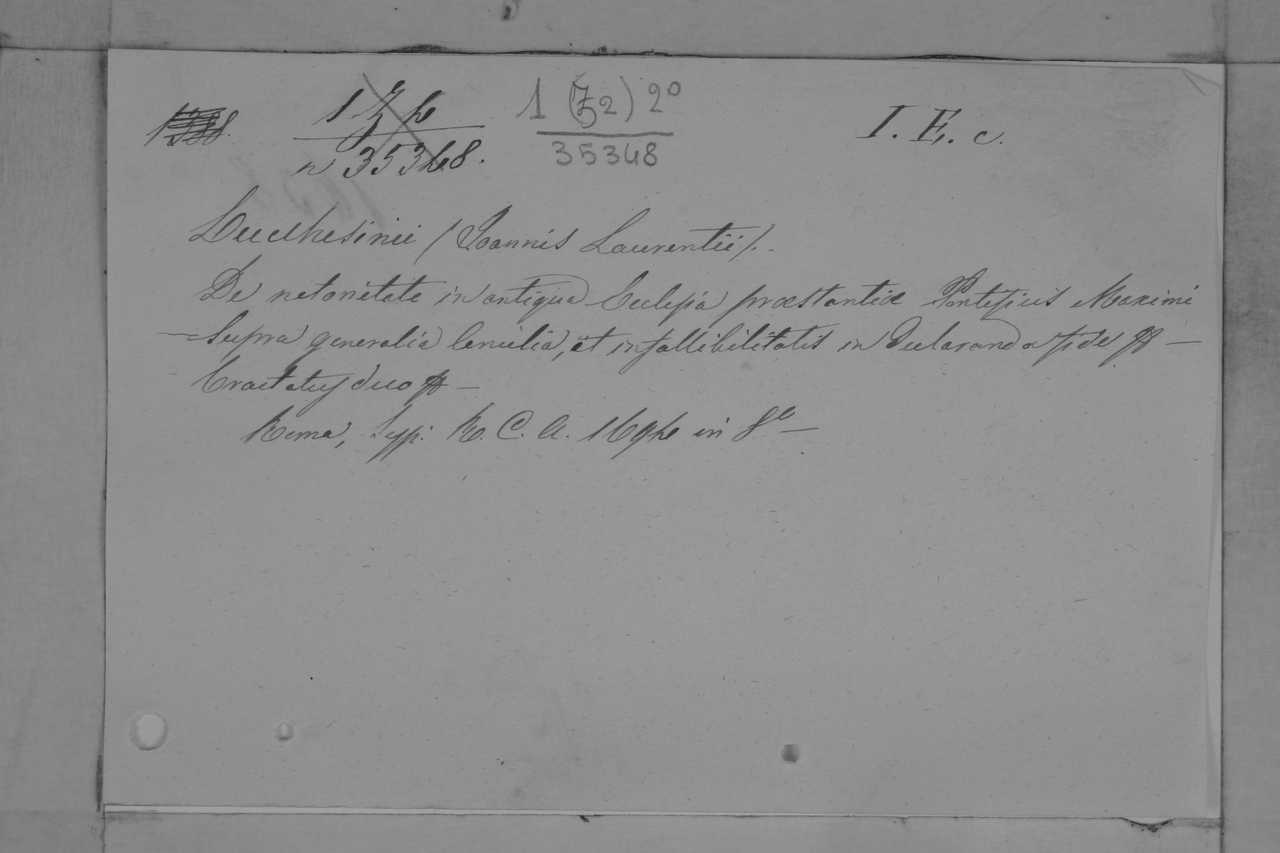 1 (Z2) 2º I. E. c.
n 35348. 35348
Lucchesinii (Joannis Laurentii).
De notorietate in antiqua Ecclesia præstantiæ Pontificis Maximi
supra generalia Concilia, et infallibilitatis in declaranda fide
tractatus duo
Romæ, Typ. R. C. A. 1694 in 8º